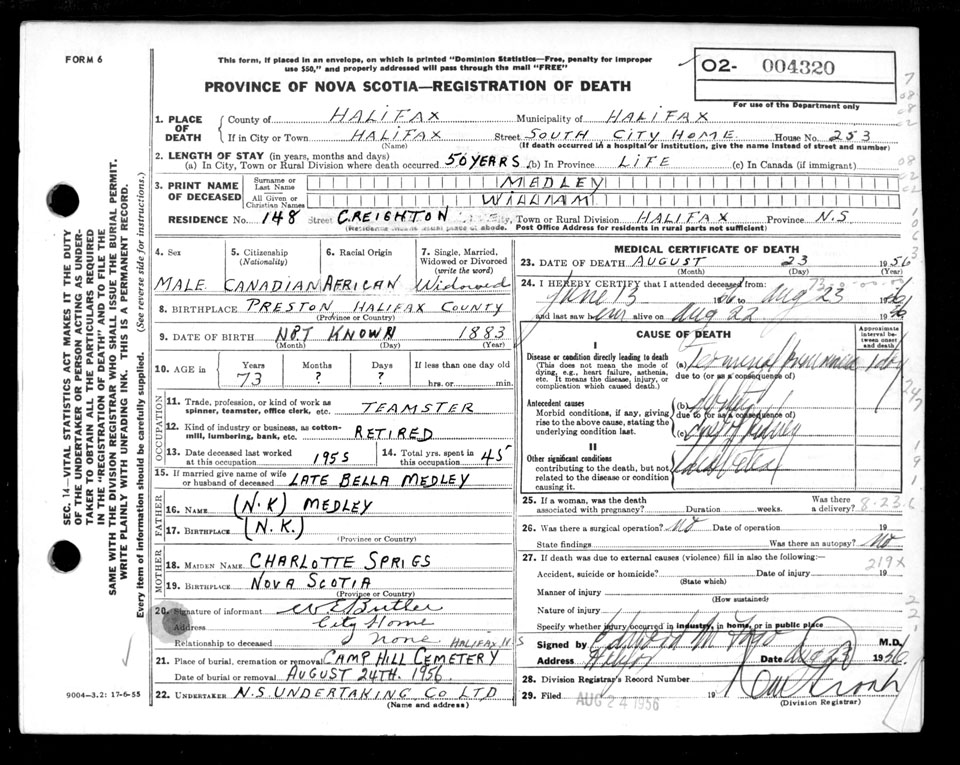 FORM 6
This form, if placed in an envelope, on which is printed "Dominion Statistics—Free, penalty for improper
use $50," and properly addressed will pass through the mail "FREE"
PROVINCE OF NOVA SCOTIA—REGISTRATION OF DEATH
02- 004320
For use of the Department only
1. PLACE OF DEATH
County of HALIFAX Municipality of HALIFAX
If in City or Town HALIFAX Street SOUTH CITY HOME House No. 253
(Name) (If death occurred in a hospital or institution, give the name instead of street and number)
2. LENGTH OF STAY (in years, months and days)
(a) In City, Town or Rural Division where death occurred 50 YEARS (b) In Province LIFE (c) In Canada (if immigrant)
3. PRINT NAME OF DECEASED
Surname or Last Name MEDLEY
All Given or Christian Names WILLIAM
RESIDENCE No. 148 Street CREIGHTON City, Town or Rural Division HALIFAX Province N.S.
(Residence means usual place of abode. Post Office Address for residents in rural parts not sufficient)
4. Sex
MALE
5. Citizenship (Nationality)
CANADIAN
6. Racial Origin
AFRICAN
7. Single, Married, Widowed or Divorced (write the word)
Widowed
8. BIRTHPLACE PRESTON HALIFAX COUNTY
(Province or Country)
9. DATE OF BIRTH NOT KNOWN 1883
(Month) (Day) (Year)
10. AGE
Years Months Days If less than one day
73 ? ? hrs. or min.
OCCUPATION
11. Trade, profession, or kind of work as spinner, teamster, office clerk, etc. TEAMSTER
12. Kind of industry or business, as cotton-mill, lumbering, bank, etc. RETIRED
13. Date deceased last worked at this occupation 1955
14. Total yrs. spent in this occupation 45
15. If married give name of wife or husband of deceased LATE BELLA MEDLEY
FATHER
16. NAME (N.K) MEDLEY
17. BIRTHPLACE (N.K.)
(Province or Country)
MOTHER
18. MAIDEN NAME CHARLOTTE SPRIGS
19. BIRTHPLACE NOVA SCOTIA
(Province or Country)
20. Signature of informant W E Butler
Address City Home
Relationship to deceased None HALIFAX N S
21. Place of burial, cremation or removal CAMP HILL CEMETERY
Date of burial or removal AUGUST 24TH. 1956
22. UNDERTAKER N.S. UNDERTAKING CO LTD
(Name and address)
MEDICAL CERTIFICATE OF DEATH
23. DATE OF DEATH AUGUST 23 1956
(Month) (Day) (Year)
24. I HEREBY CERTIFY that I attended deceased from:
June 13 Aug 23
and last saw him alive on Aug 22
CAUSE OF DEATH
Approximate interval between onset and death
I
Disease or condition directly leading to death
(This does not mean the mode of dying, e.g., heart failure, asthenia, etc. It means the disease, injury, or complication which caused death.)
(a) Terminal
due to (or as a consequence of)
Antecedent causes
Morbid conditions, if any, giving rise to the above cause, stating the underlying condition last.
(b)
due to (or as a consequence of)
(c) Kidney
II
Other significant conditions
contributing to the death, but not related to the disease or condition causing it
25. If a woman, was the death associated with pregnancy? Duration weeks. Was there a delivery? 8-23-6
26. Was there a surgical operation? No Date of operation 19
State findings Was there an autopsy? No
27. If death was due to external causes (violence) fill in also the following:
219X
Accident, suicide or homicide? Date of injury 19
(State which)
Manner of injury
(How sustained)
Nature of injury
Specify whether injury occurred in industry, in home, or in public place
Signed by Edward M. M.D.
Address Date Aug 23 1956
28. Division Registrar's Record Number
29. Filed AUG 24 1956 19
(Division Registrar)
9004-3.2: 17-6-55
SEC. 14—VITAL STATISTICS ACT MAKES IT THE DUTY
OF THE UNDERTAKER OR PERSON ACTING AS UNDERTAKER
TO OBTAIN ALL THE PARTICULARS REQUIRED
IN THE "REGISTRATION OF DEATH" AND TO FILE THE
SAME WITH THE DIVISION REGISTRAR WHO SHALL ISSUE THE BURIAL PERMIT.
WRITE PLAINLY WITH UNFADING INK. THIS IS A PERMANENT RECORD.
Every item of information should be carefully supplied. (See reverse side for instructions.)